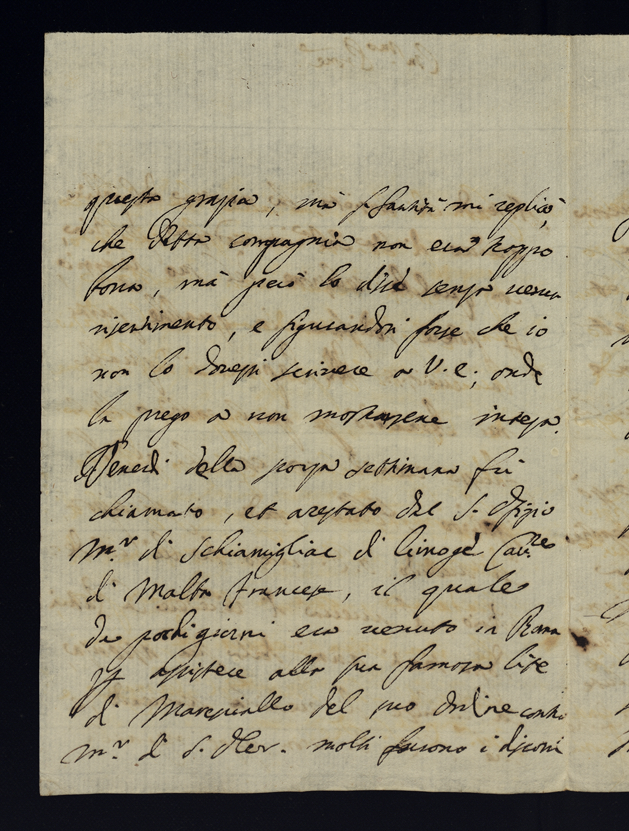 questa grazia, mà S. Santità mi replicò,
che detta compagnia non era troppo
bona, mà però lo disse senza verun
risentimento, e figurandosi forse che io
non lo dovessi scrivere a V. E.; onde
la prego a non mostrarsene intesa.
Venerdì della scorsa settimana fù
chiamato, et arestato dal S. Offizio
Mr. di Schiamigliac di Limoge Cav.re
di Malta Francese, il quale
da pochi giorni era venuto in Roma
assistere alla sua famosa lite
di Maresciallo del suo ordine contro
Mr. di S. molti furono i discorsi